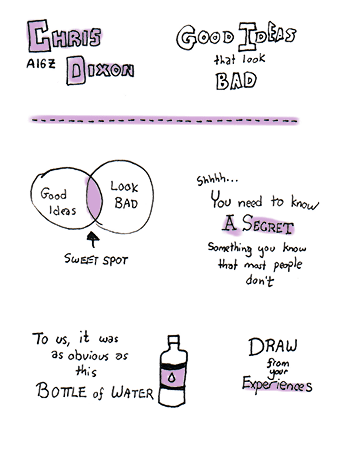 CHRIS
DIXON
A16Z
GOOD IDEAS
that look
BAD
Good
Ideas
Look
BAD
SWEET SPOT
Shhhh...
You need to know
A SECRET
Something you know
that most people
don't
To us, it was
as obvious as
this
BOTTLE of WATER
DRAW
from
your
Experiences